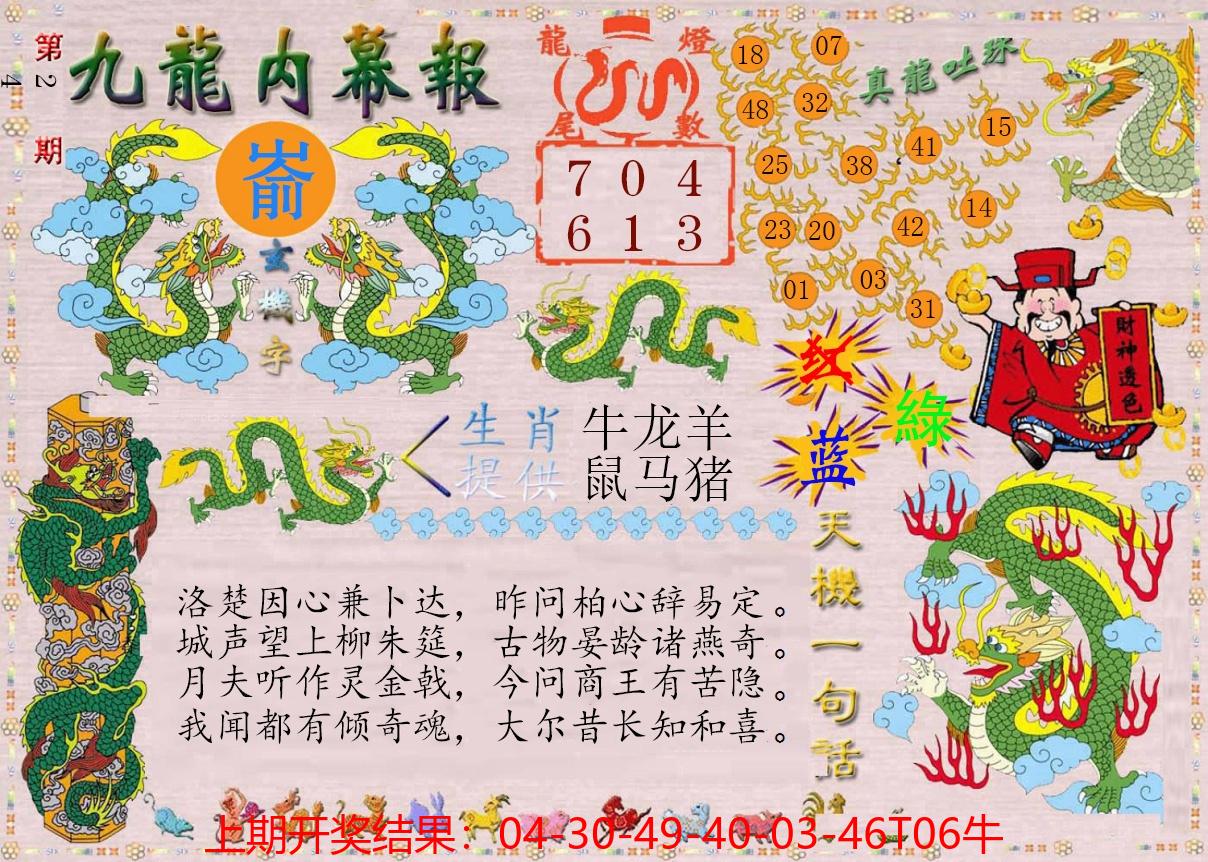 第
24
期
九龍内幕報
龍 燈
尾 數
7 0 4
6 1 3
真龍吐珠
18 07
48 32
41 15
25 38
23 20 42 14
01 03 31
玄
機
字
财神透色
红
綠
蓝
生肖 牛龙羊
提供 鼠马猪
天機一句话
洛楚因心兼卜达，昨问柏心辞易定。
城声望上柳朱筵，古物晏龄诸燕奇。
月夫听作灵金戟，今问商王有苦隐。
我闻都有倾奇魂，大尔昔长知和喜。
上期开奖结果：04-30-49-40-03-46T06牛